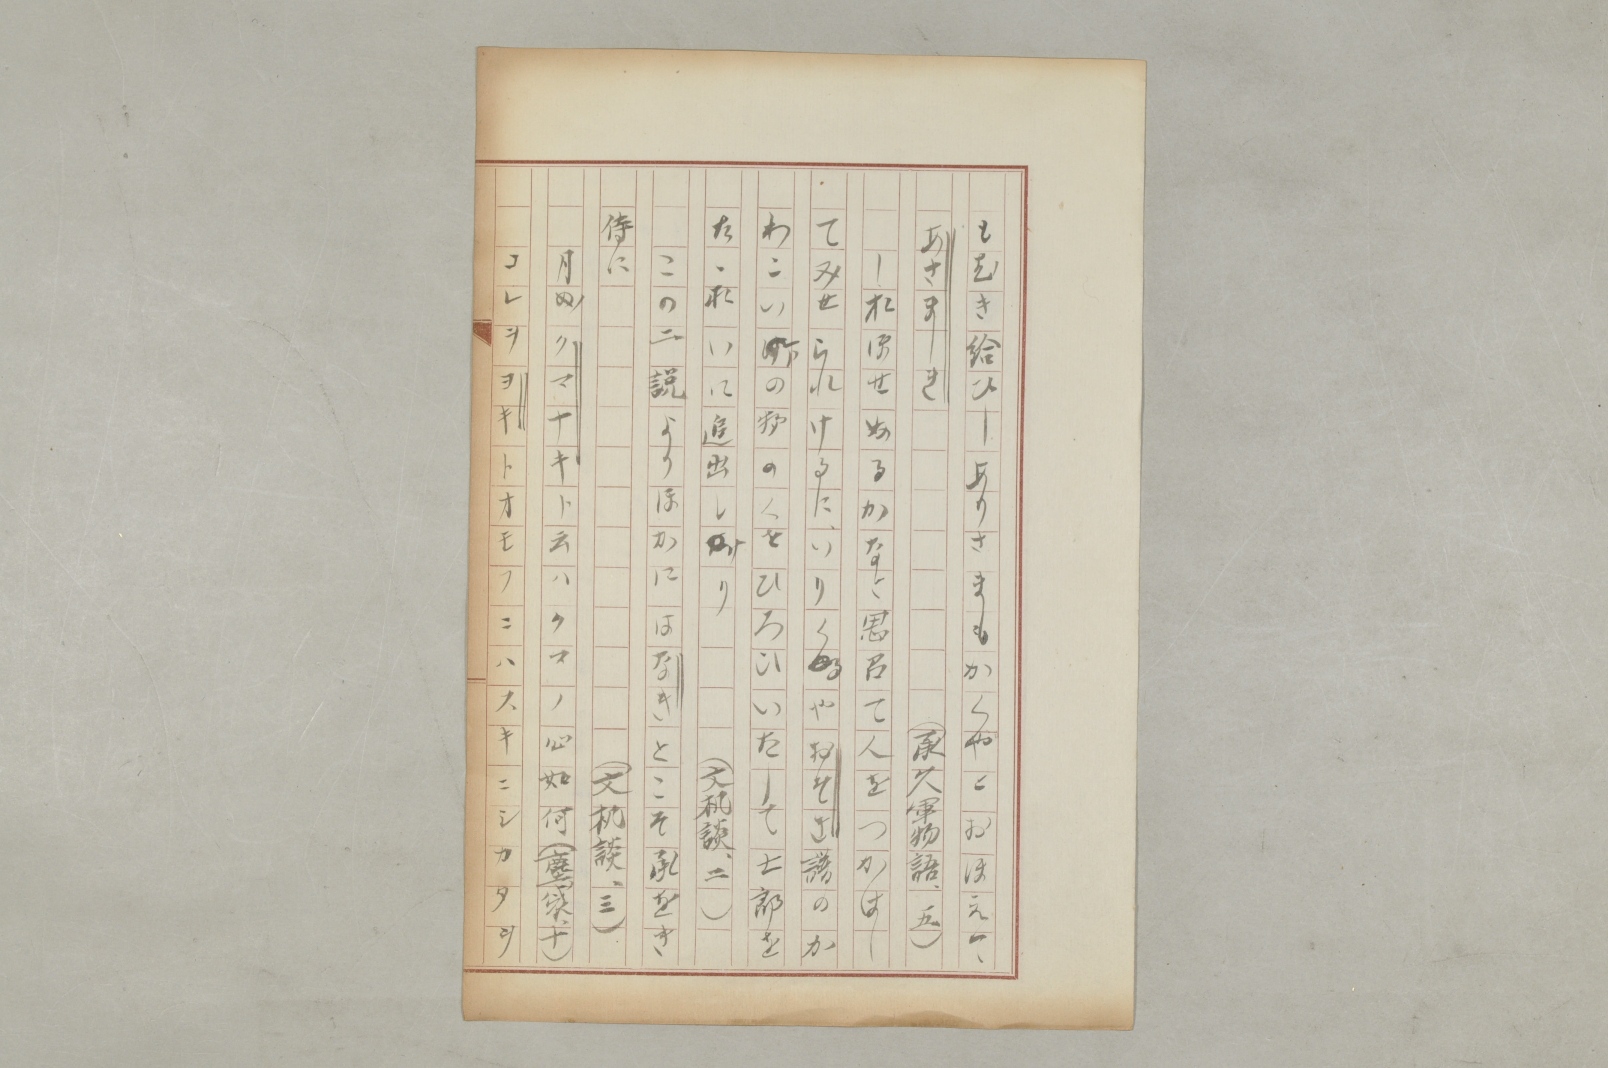 もむき給ひしありさまもかくやとおほえて
あさましき（承久軍物語、五）
しれほせぬるかなと思召て人をつかはし
てみせられけるに、いりくるやおそき譜のか
わこい所の物の具をひろひいたして士部を
たゝれいに追出しけり（文机談、二）
この二説よりほかにはなきとこそ承をき
侍に（文机談、三）
月ぬクマナキト云ハクマノ心如何（塵袋、十）
コレヲヨキトオモフニハスキニシカタヲ